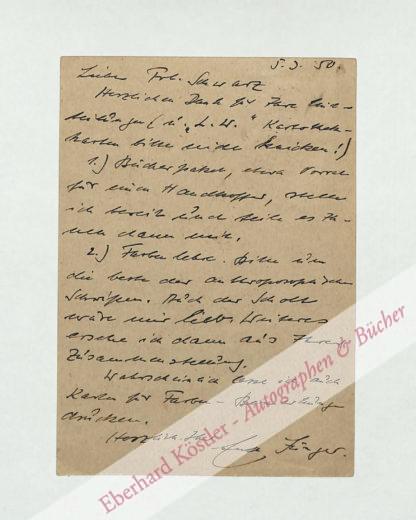 5. 3. 50.
Liebes Frl. Schwarz
Herzlichen Dank für Ihre
(u. „L. W."
karten bitte nicht knicken!)
1.) Bücherpaket, etwa
für einen Handkoffer, stelle
ich bereit und teile es Ih-
nen dann mit.
2.) Farbenlehre. Bitte um
die beste der anthroposophischen
Schriften. Auch der
wäre mir lieb. Weiteres
ersehe ich dann aus Ihrer
Zusammenstellung.
Wahrscheinlich lasse ich auch
Karten für Farben-
drucken.
Herzlich Ihr
Ernst Jünger.
Eberhard Köstler - Autographen & Bücher